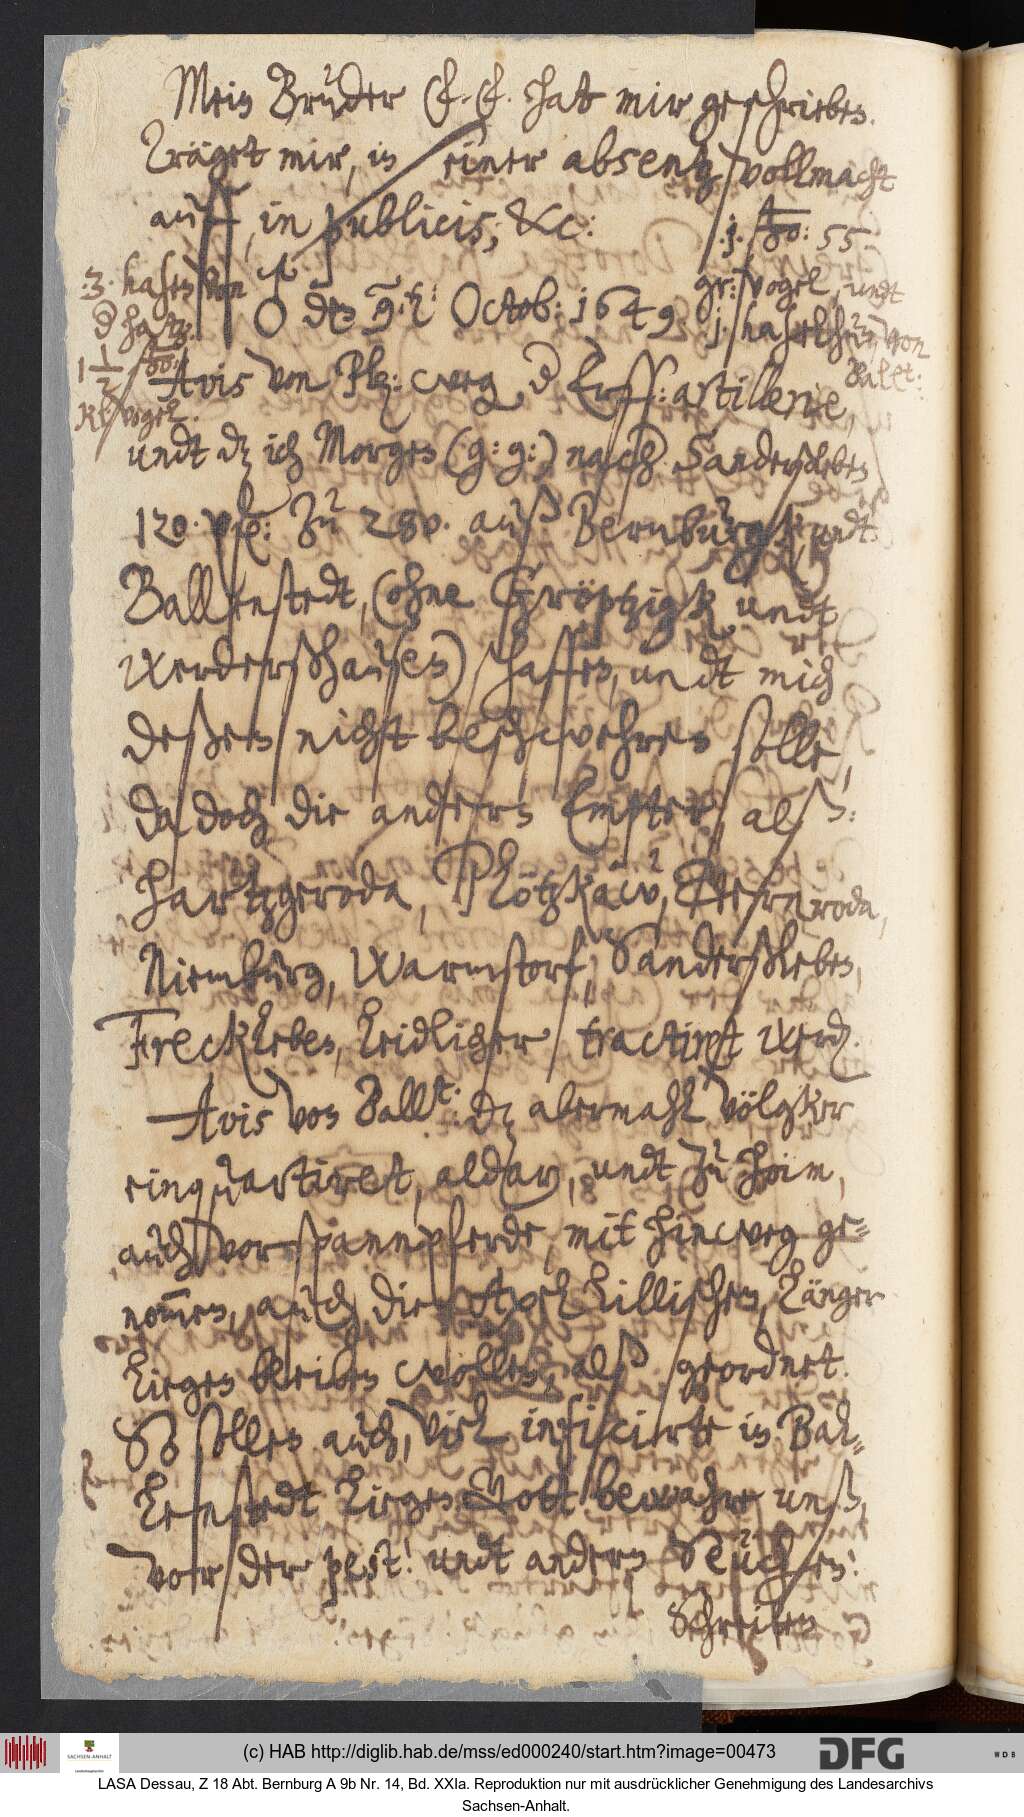 Mein Bruder F. F. hat mir geschrieben.
Träget mir, in einer absentz vollmacht
auff, in publicis, &c:
den 9. Octob: 1649
.3. hasen von
1½
Reh vogel.
.j. 55
gr: vogel, undt
j. haselhun, von
Balt:
Avis von weg d artillerie,
undt dz ich Morgen (g: g:) nach Sandersleben
120. zu 280. auß Bernburgk undt
Ballenstedt, (ohne Gröptzigk undt
Werdershausen) schaffen, undt mich
deßen nicht beschwehren solle,
da doch die andern Empter, alß:
Hartzgeroda, Plötzkaw, Gernroda,
Niemburg, Warmstorf, Sandersleben,
Freckleben, leidlicher tractiret werd.
Avis von Ballst: dz abermahl völgker
einquartiret, aldar, undt zu Hoim,
auch vorspannpferde, mit hinweg ge=
nom̄en, auch die Axel Lillischen, länger
liegen bleiben wollen, alß geordnet.
So sollen auch, viel inficirte in Bal=
lenstedt liegen. Gott bewahre unß,
vor der pest! undt andern Seuchen!
Schreiben
(c) HAB http://diglib.hab.de/mss/ed000240/start.htm?image=00473
SACHSEN-ANHALT
DFG
WDB
LASA Dessau, Z 18 Abt. Bernburg A 9b Nr. 14, Bd. XXIa. Reproduktion nur mit ausdrücklicher Genehmigung des Landesarchivs
Sachsen-Anhalt.